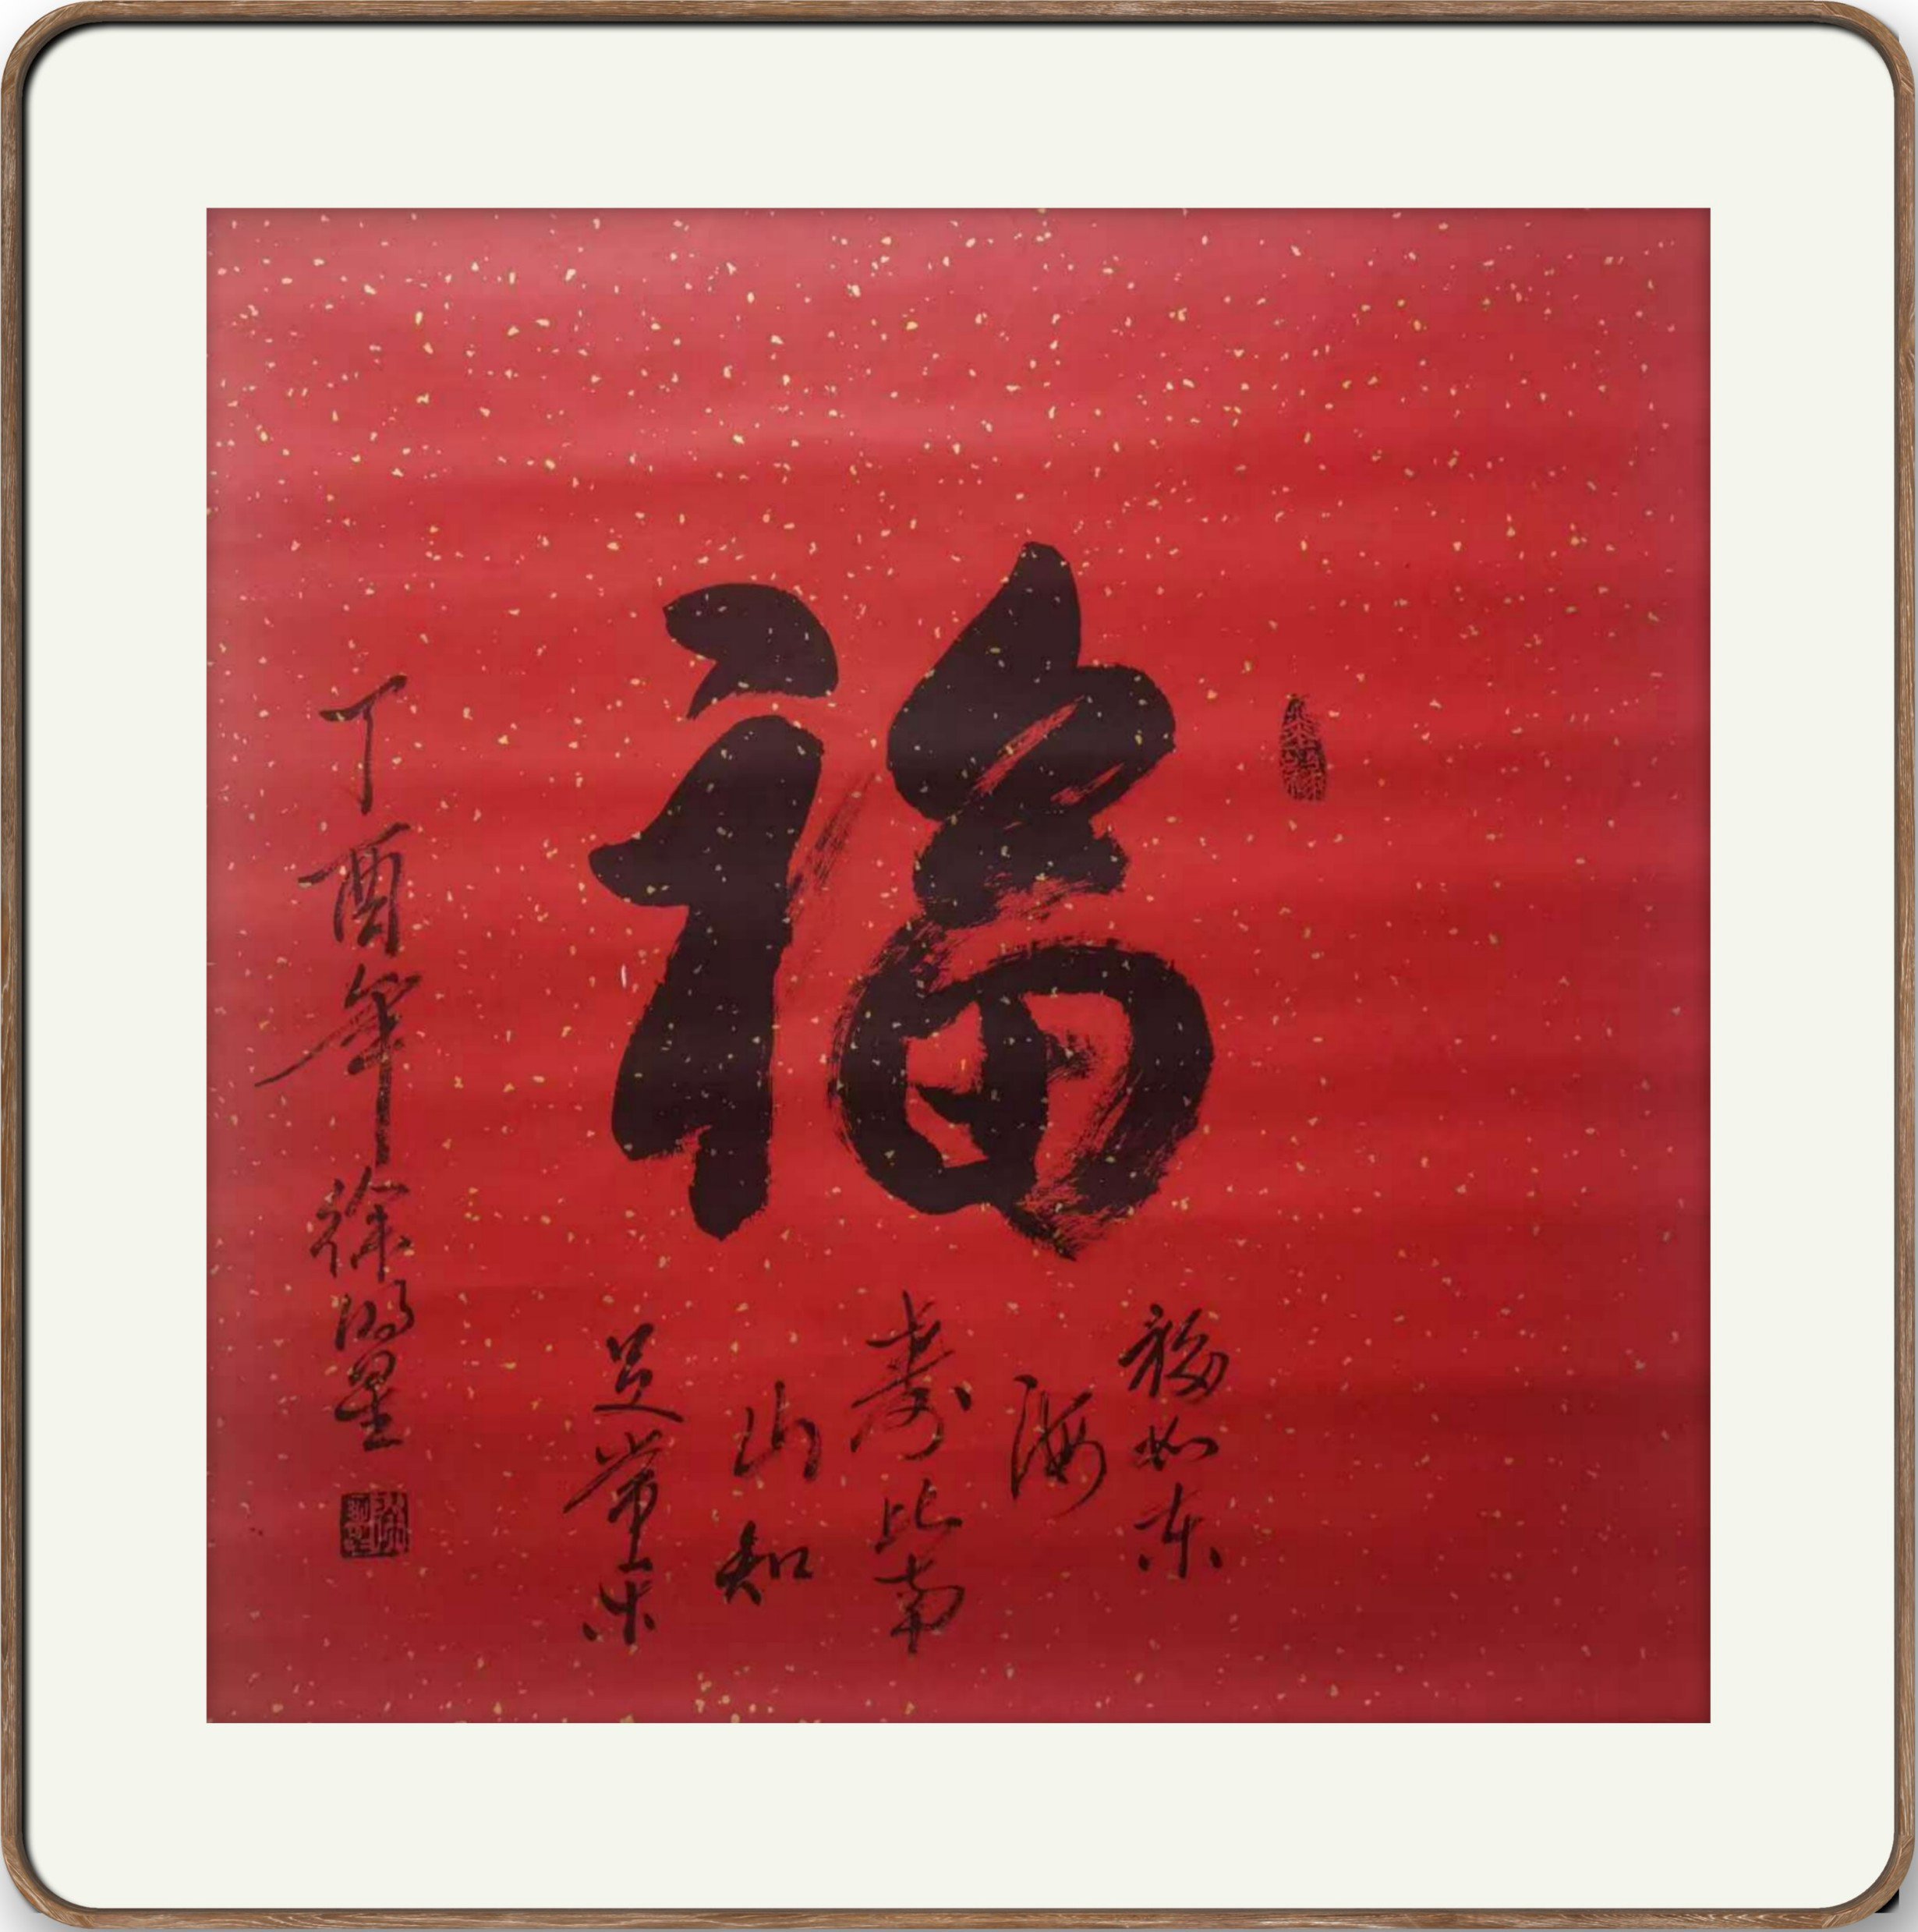 福
福如东
海
寿比南
山知
足常乐
丁酉年徐明星